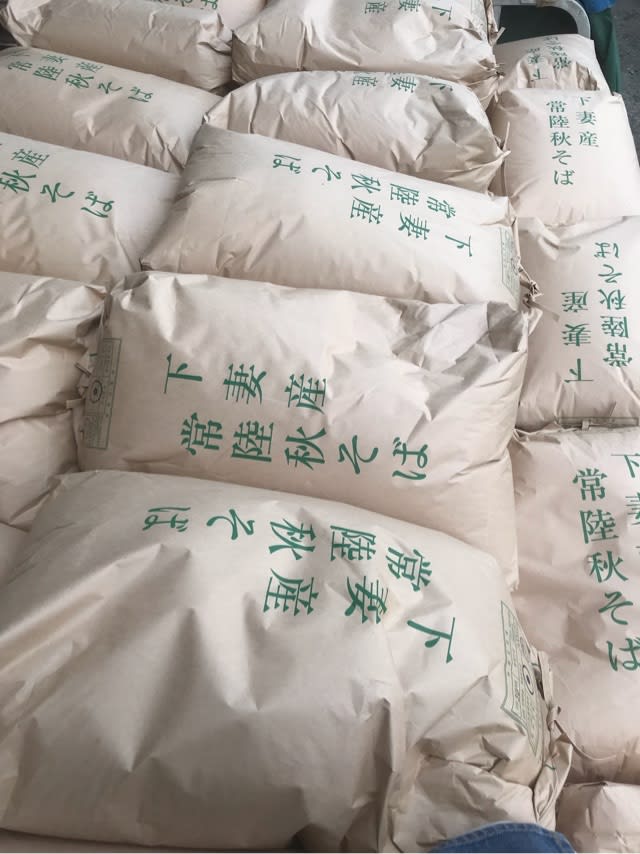 下妻産
常陸秋そば
下妻産
常陸秋そば
下妻産
常陸秋そば
下妻産
常陸秋そば
下妻産
常陸秋そば
常陸秋そば
常陸秋そば